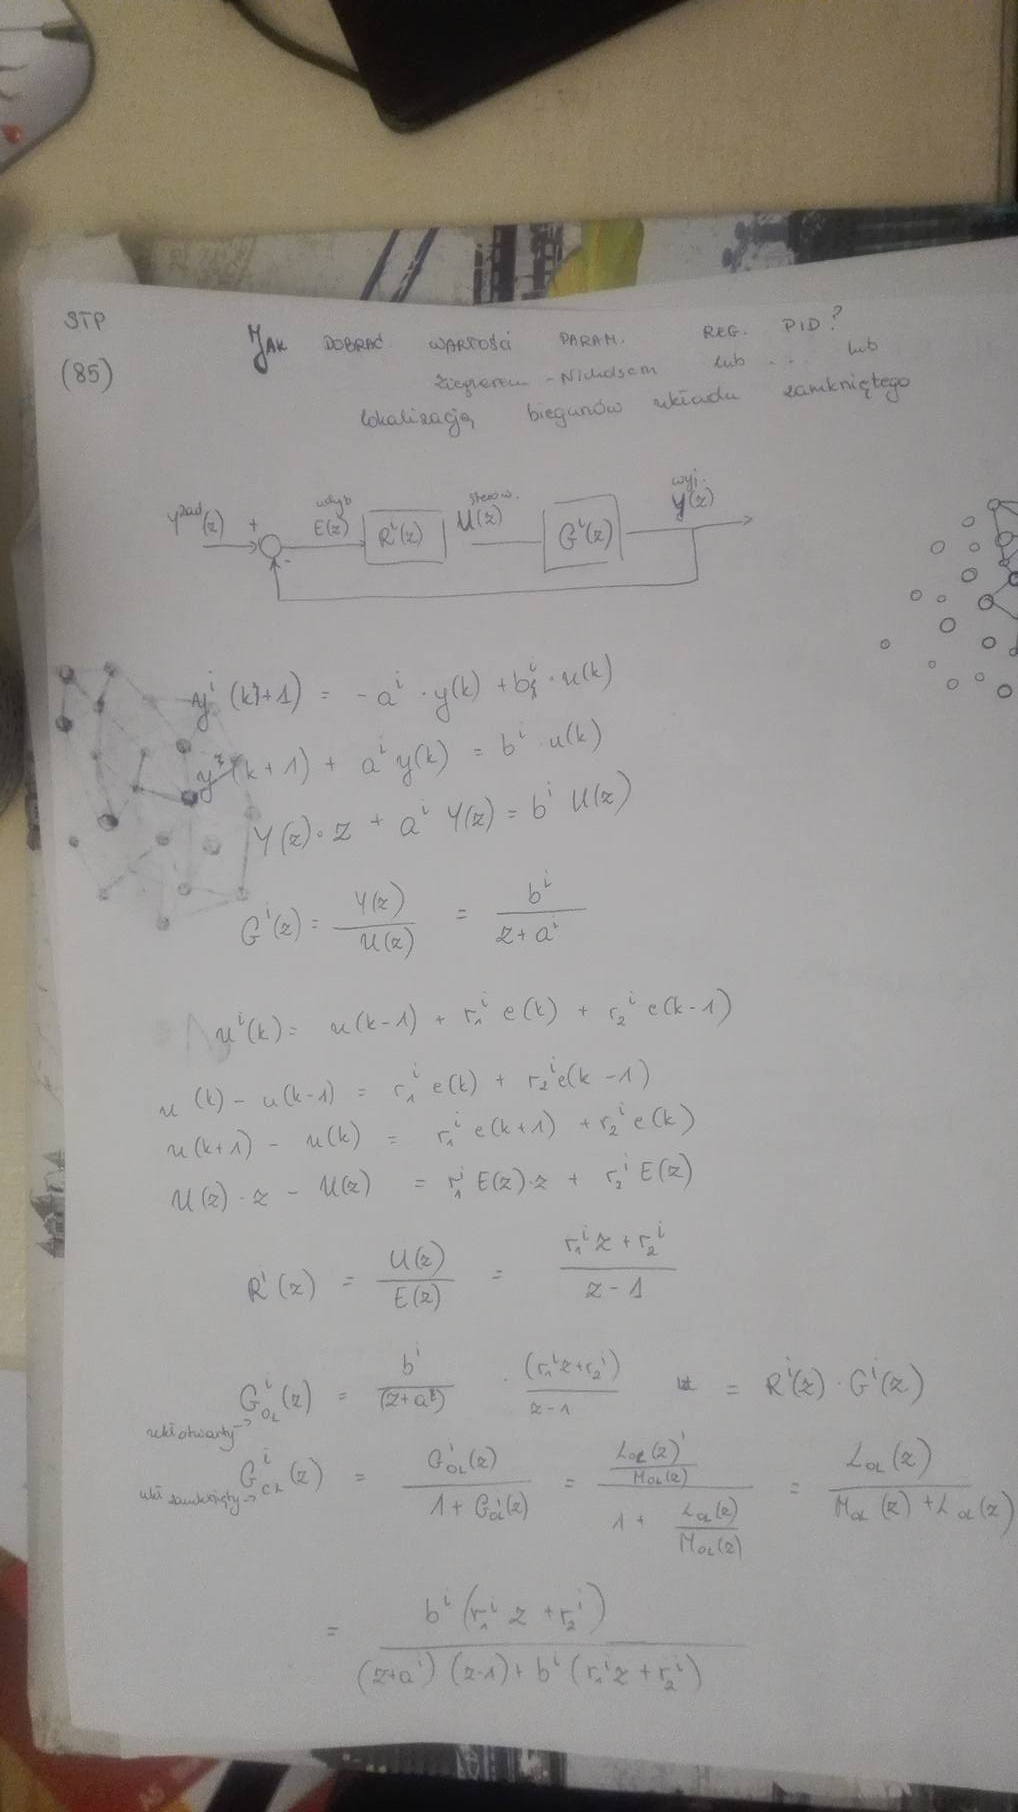 STP
(85)
JAK DOBRAĆ WARTOŚCI PARAM. REG. PID?
Zieglerem-Nicholsem lub ... lub
lokalizacją biegunów układu zamkniętego
Y^zad(z) + uchyb E(z) R^i(z) sterow. U(z) G^i(z) wyj. Y(z)
-
y^i(k+1) = -a^i · y(k) + b^i · u(k)
y(k+1) + a^i y(k) = b^i · u(k)
Y(z)·z + a^i Y(z) = b^i U(z)
G^i(z) = Y(z)/U(z) = b^i/(z+a^i)
u^i(k) = u(k-1) + r_1^i e(k) + r_2^i e(k-1)
u(k) - u(k-1) = r_1^i e(k) + r_2^i e(k-1)
u(k+1) - u(k) = r_1^i e(k+1) + r_2^i e(k)
U(z)·z - U(z) = r_1^i E(z)·z + r_2^i E(z)
R^i(z) = U(z)/E(z) = (r_1^i z + r_2^i)/(z-1)
G_OL^i(z) = b^i/(z+a^i) · (r_1^i z + r_2^i)/(z-1) = R^i(z) · G^i(z)
ukł otwarty →
G_CL^i(z) = G_OL^i(z)/(1+G_OL^i(z)) = (L_OL(z)/M_OL(z))/(1 + L_OL(z)/M_OL(z)) = L_OL(z)/(M_OL(z) + L_OL(z))
ukł zamknięty →
= b^i(r_1^i z + r_2^i)/((z+a^i)(z-1) + b^i(r_1^i z + r_2^i))